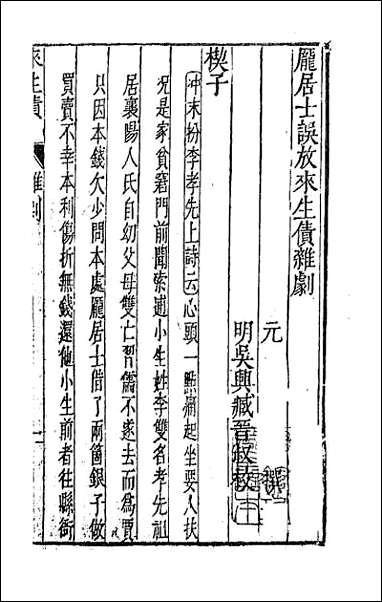 龐居士誤放來生債雜劇
元
明吳興臧晉叔校
楔子
冲末扮李孝先上詩云心頭一點痛起坐要人扶
况是家貧窘門前聞索逋小生姓李雙名孝先祖
居襄陽人氏自幼父母雙亡習儒不遂去而為賈
只因本錢欠少問本處龐居士借了兩箇銀子做
買賣不幸本利傷折無錢還他小生前者往縣衙
來生債
雜劇
一